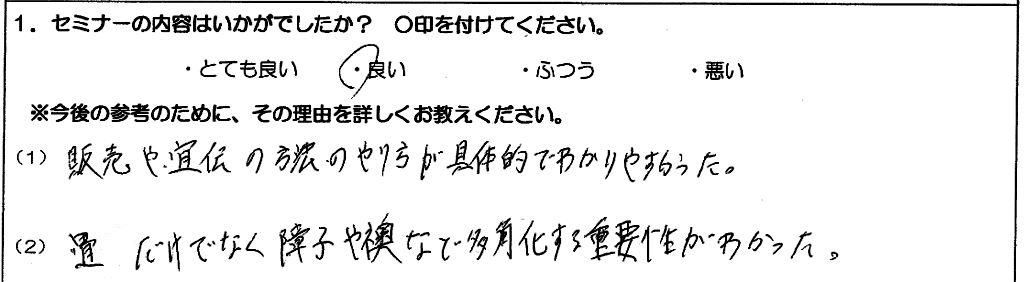 1. セミナーの内容はいかがでしたか？ ○印を付けてください。
・とても良い ・良い ・ふつう ・悪い
※今後の参考のために、その理由を詳しくお教えください。
(1) 販売や宣伝の方法のやり方が具体的でわかりやすかった。
(2) 畳 だけでなく障子や襖など多角化する重要性がわかった。